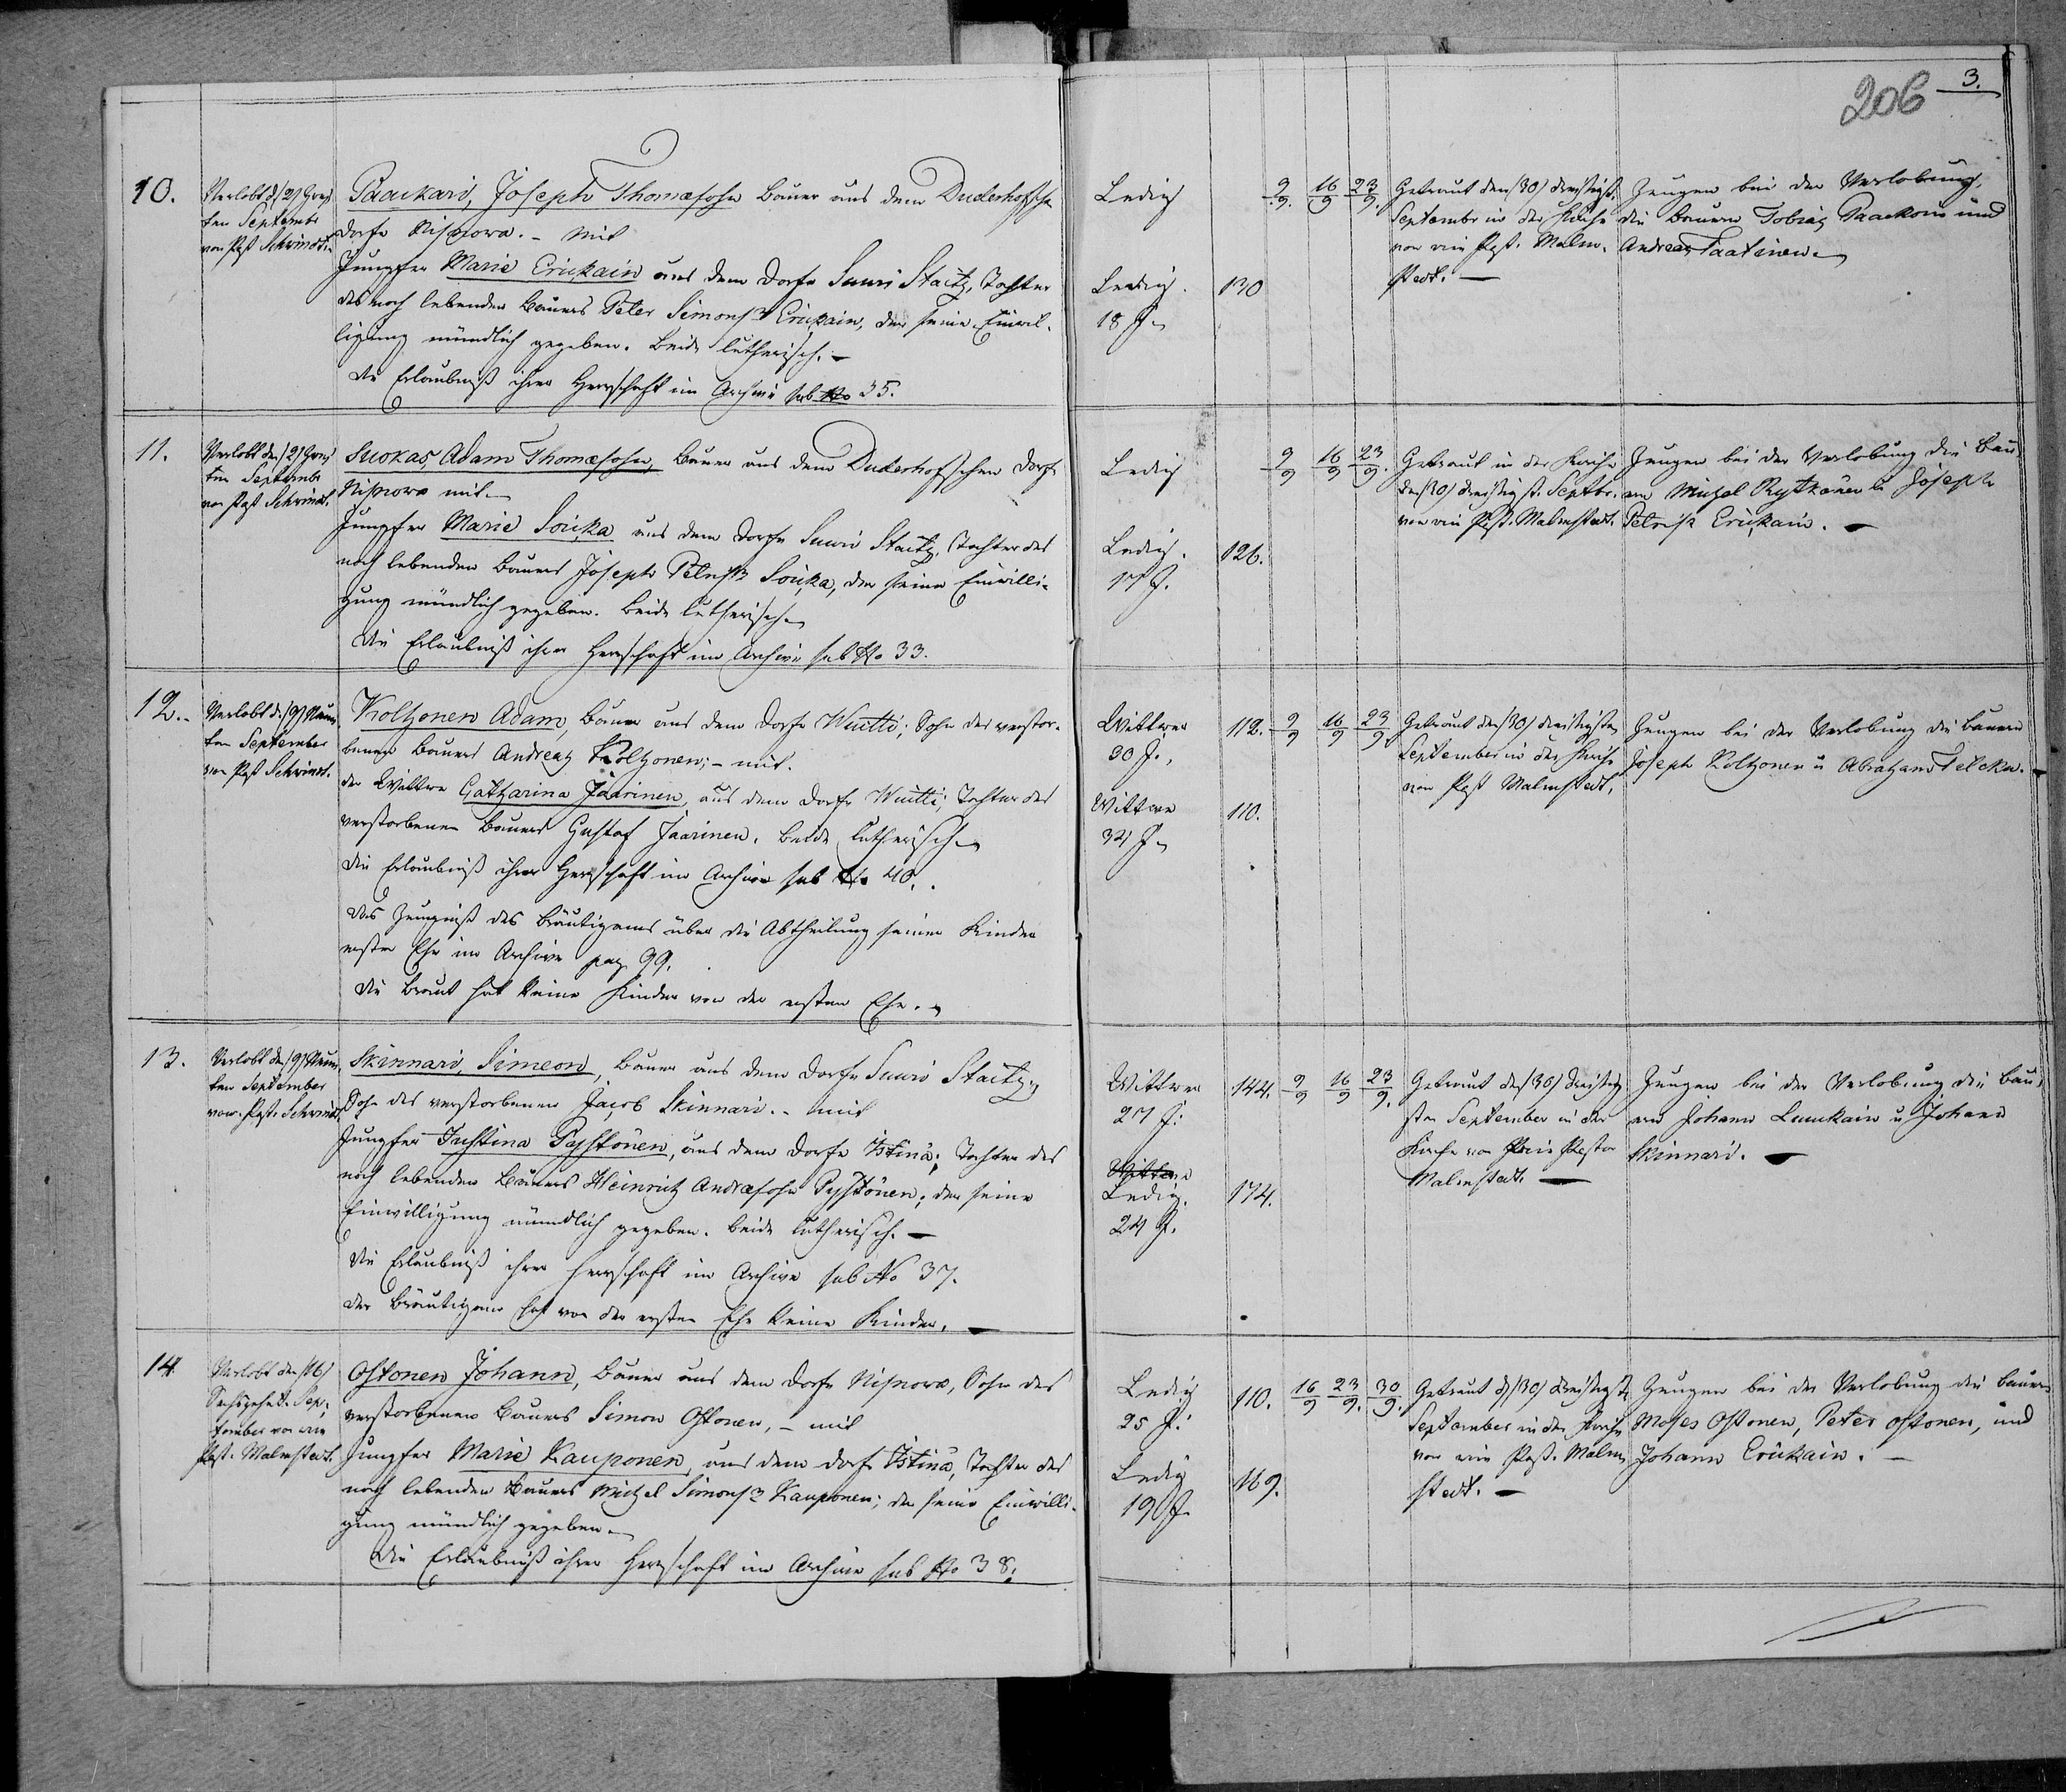 206 3.
10.
Verlobt d. /2/ Zwei
ten Septembr
von Past Schrindt.
Paackari, Joseph Thomæsohn Bauer aus dem Duderhofsche
Dorfe Nisnowa. – mit
Jungfer Marie Erickain aus dem Dorfe Suuri Staitz, Tochter
des noch lebenden Bauers Peter Simons Erickain, der seine Einwil-
ligung mündlich gegeben. Beide lutherisch. –
Die Erlaubniß ihrer Herrschaft im Archive sub No 35.
Ledig
Ledig.
18 J.
130
9/9. 16/9 23/9.
Getraut den /30/ dreißigst.
September in der Kirche
von Past. Malm-
stedt. –
Zeugen bei der Verlobung,
die Bauern Tobias Paackari und
Andreas Taatinen.
11.
Verlobt den /2/ Zwei
ten Septembr
von Past Schrindt.
Suokas, Adam Thomæsohn, Bauer aus dem Duderhofschen Dorfe
Nisnowa mit
Jungfer Marie Soicka aus dem Dorfe Suuri Staitz, Tochter des
noch lebenden Bauers Joseph Petris Soicka, der seine Einwilli-
gung mündlich gegeben. Beide lutherisch
Die Erlaubniß ihrer Herrschaft im Archive sub No 33.
Ledig
Ledig.
17 J.
126.
9/9 16/9 23/9.
Getraut in der Kirche
den /30/ dreißigst. Septbr.
von Past. Malmstedt.
Zeugen bei der Verlobung die Bau-
ern Michel Rytkönen u Joseph
Petris Erickain. –
12.
Verlobt d. /9/ Neun
ten September
von Past Schrindt.
Kolhonen Adam, Bauer aus dem Dorfe Wuitti; Sohn des verstor-
benen Bauers Andreas Kolhonen; – mit
der Wittwe Catharina Jäärinen, aus dem Dorfe Wuitti; Tochter des
verstorbenen Bauers Gustaf Jäärinen. Beide lutherisch
Die Erlaubniß ihrer Herrschaft im Archive sub No 40.
Das Zeugniß des Bräutigams über die Abtheilung seiner Kinder
erster Ehe im Archive pag 99.
Die Braut hat keine Kinder von der ersten Ehe.
Wittwer
30 J.,
Wittwe
34 J.
112.
110.
9/9 16/9 23/9.
Getraut den /30/ dreißigsten
September in der Kirche
von Past Malmstedt.
Zeugen bei der Verlobung die Bauern
Joseph Kolhonen u Abraham Telcka. –
13.
Verlobt den /9/ Neun
ten September
von Past. Schrindt.
Skinnari, Simeon, Bauer aus dem Dorfe Suuri Staitz,
Sohn des verstorbenen Jacob Skinnari. – mit
Jungfer Justina Pystönen, aus dem Dorfe Istinä; Tochter des
noch lebenden Bauers Heinrich Andræsohn Pystönen; der seine
Einwilligung mündlich gegeben. Beide lutherisch. –
Die Erlaubniß ihrer Herrschaft im Archive sub No 37.
Der Bräutigam hat von der ersten Ehe keine Kinder. –
Wittwer
27 J.
Wittwe
Ledig.
24 J.
144.
174.
9/9 16/9 23/9.
Getraut den /30/ dreißig
sten September in der
Kirche von Pastor
Malmstedt. –
Zeugen bei der Verlobung die Bau-
ern Johann Luuckain u Johann
Skinnari. –
14.
Verlobt den /16/
Sechszehnt. Sep-
tember von
Past. Malmstedt.
Ostonen Johann, Bauer aus dem Dorfe Nisnowa, Sohn des
verstorbenen Bauers Simon Ostonen, – mit
Jungfer Marie Kauponen, aus dem Dorfe Istinä, Tochter des
noch lebenden Bauers Michel Simons Kauponen; der seine Einwilli-
gung mündlich gegeben
Die Erlaubniß ihrer Herrschaft im Archive sub No 38.
Ledig
25 J.
Ledig
19 J.
110.
169.
16/9 23/9. 30/9.
Getraut d. /30/ dreißigst.
September in der Kirche
von Past. Malm-
stedt. –
Zeugen bei der Verlobung die Bauern
Moses Ostonen, Peter Ostonen, und
Johann Erickain. –